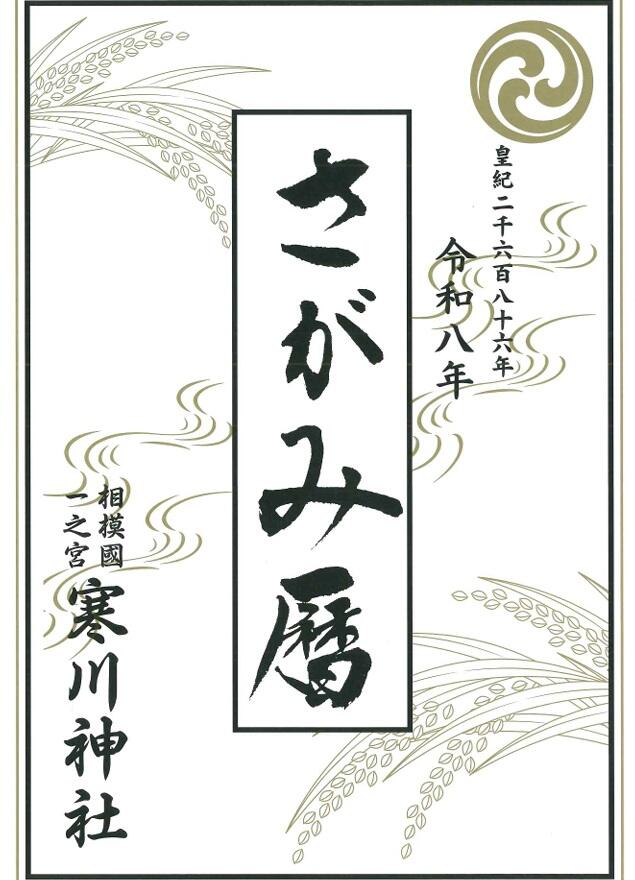 皇紀二千六百八十六年
令和八年
さがみ暦
相模國
一之宮
寒川神社